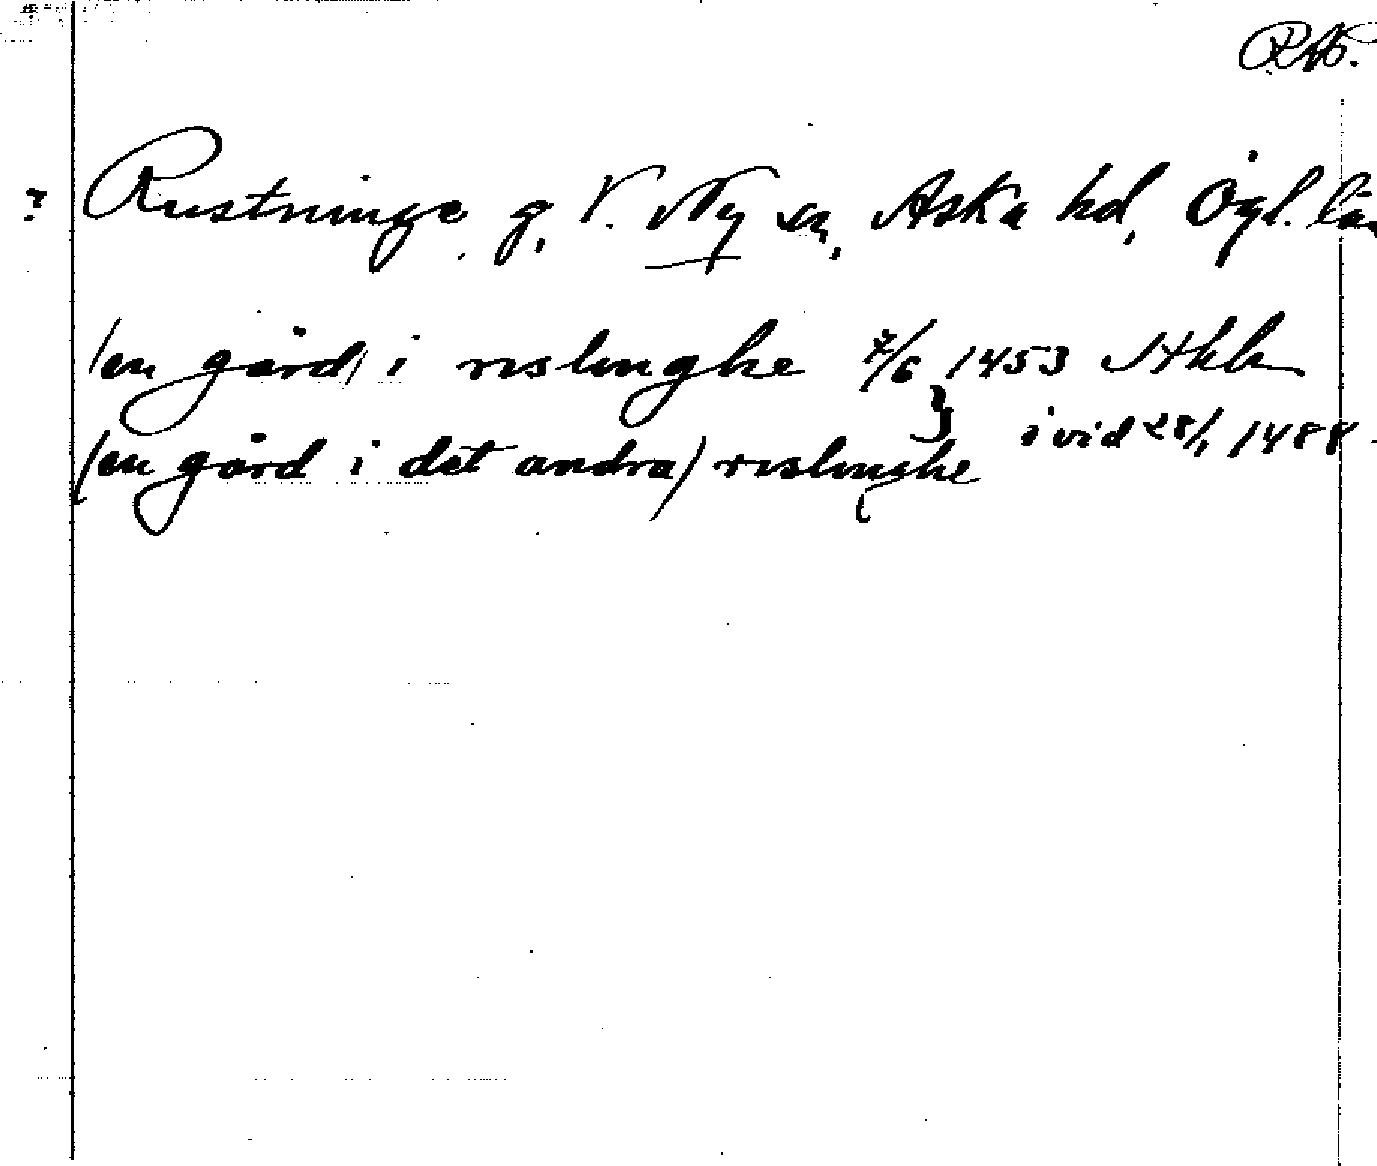 RAP.
? Rustninge g, V. Ny sn, Aska hd, Ögl. län
(en gård) i rislinghe 7/6 1453
(en gård i det andra) rislinghe } i vid 28/1 1488